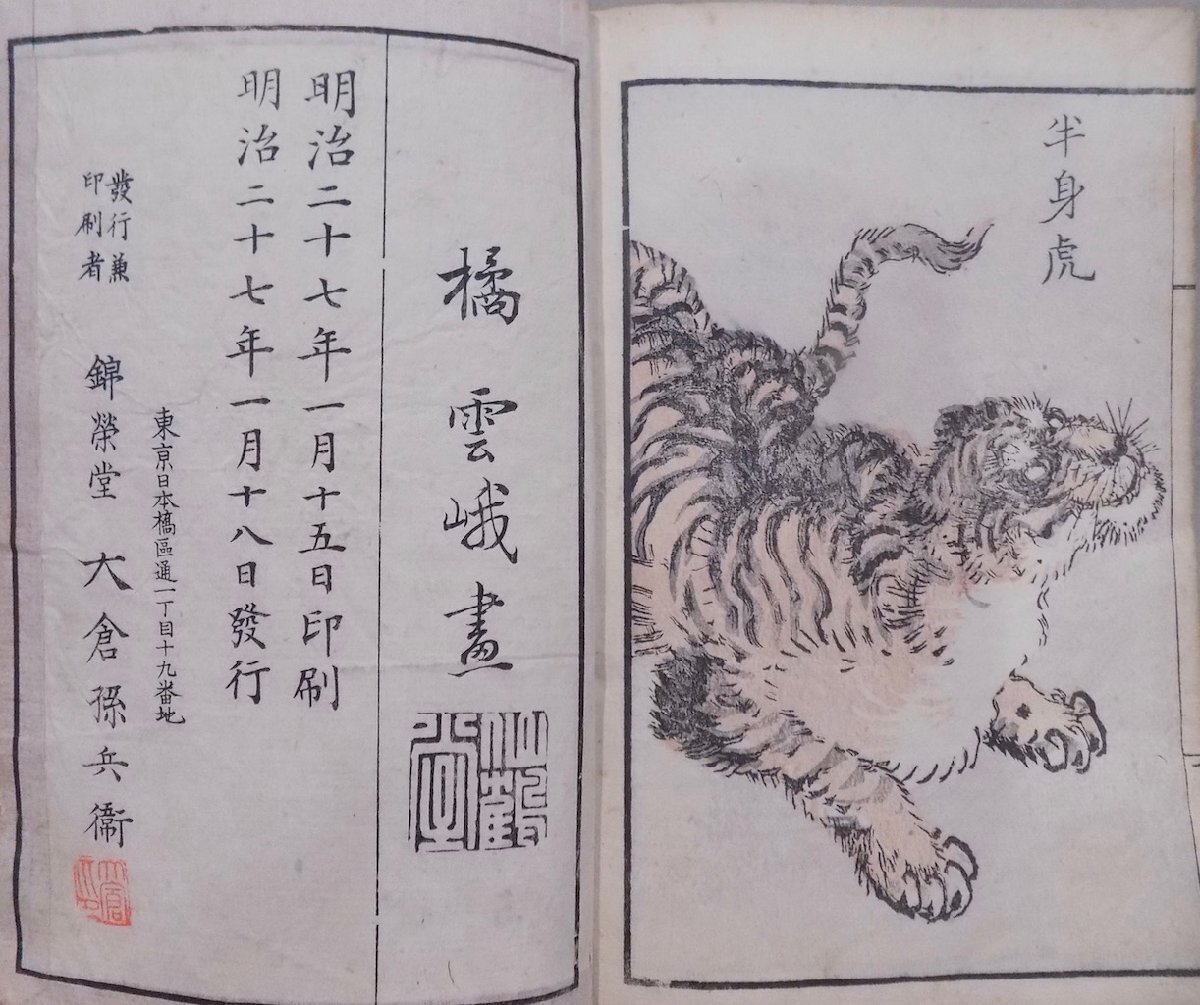 半身虎
橘雲峨畫
明治二十七年一月十五日印刷
明治二十七年一月十八日發行
東京日本橋區通一丁目十九番地
發行兼
印刷者
錦榮堂 大倉孫兵衞